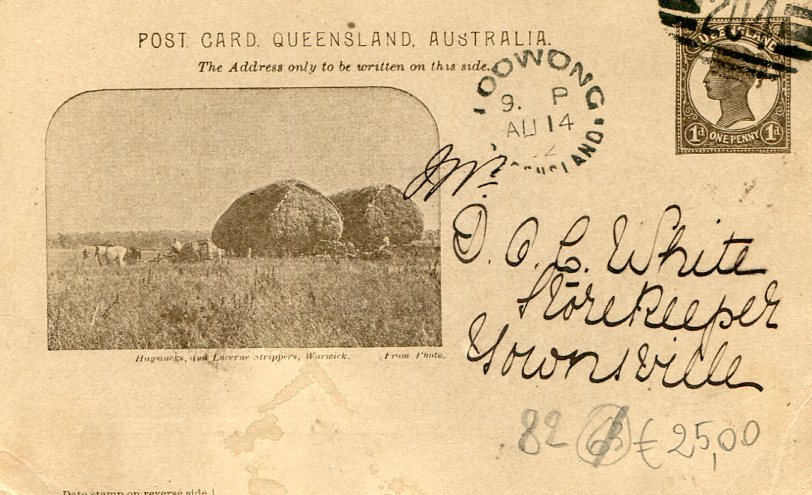 POST CARD. QUEENSLAND, AUSTRALIA.
The Address only to be written on this side.
OOWONG
9. P
AU 14
ONE PENNY
1d 1d
Mr.
White
Storekeeper
Townsville
Haystacks, and Lucerne Strippers, Warwick. From Photo.
82 € 25,00
Date stamp on reverse side